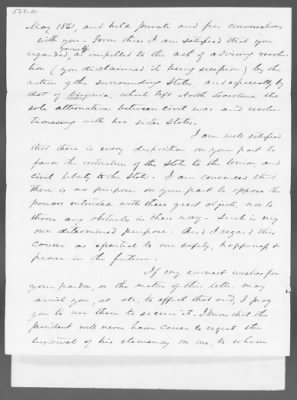 May 1861, and held private and free conversations
with you. From these I am satisfied that you
regarded yourself as impelled to the act of advising revolu
tion (you disclaimed its being secession) by the
action of the surrounding States and especially by
that of Virginia, which left North Carolina the
sole alternative between civil war and revolu
tionising with her sister States.
I am well satisfied
that there is every disposition on your part to
favor the restoration of the State to the Union and
civil liberty to the State. I am convinced that
there is no purpose on your part to oppose the
persons entrusted with these great objects, nor to
throw any obstacles in their way. Such is my
own determined purpose. And I regard this
course as essential to our safety, happiness &
peace in the future.
If my earnest wishes for
your pardon, or the matter of this letter may
avail you, at all, to effect that end, I pray
you to use them to secure it. I know that the
president will never have cause to regret the
bestowal of his clemency on one, to whom